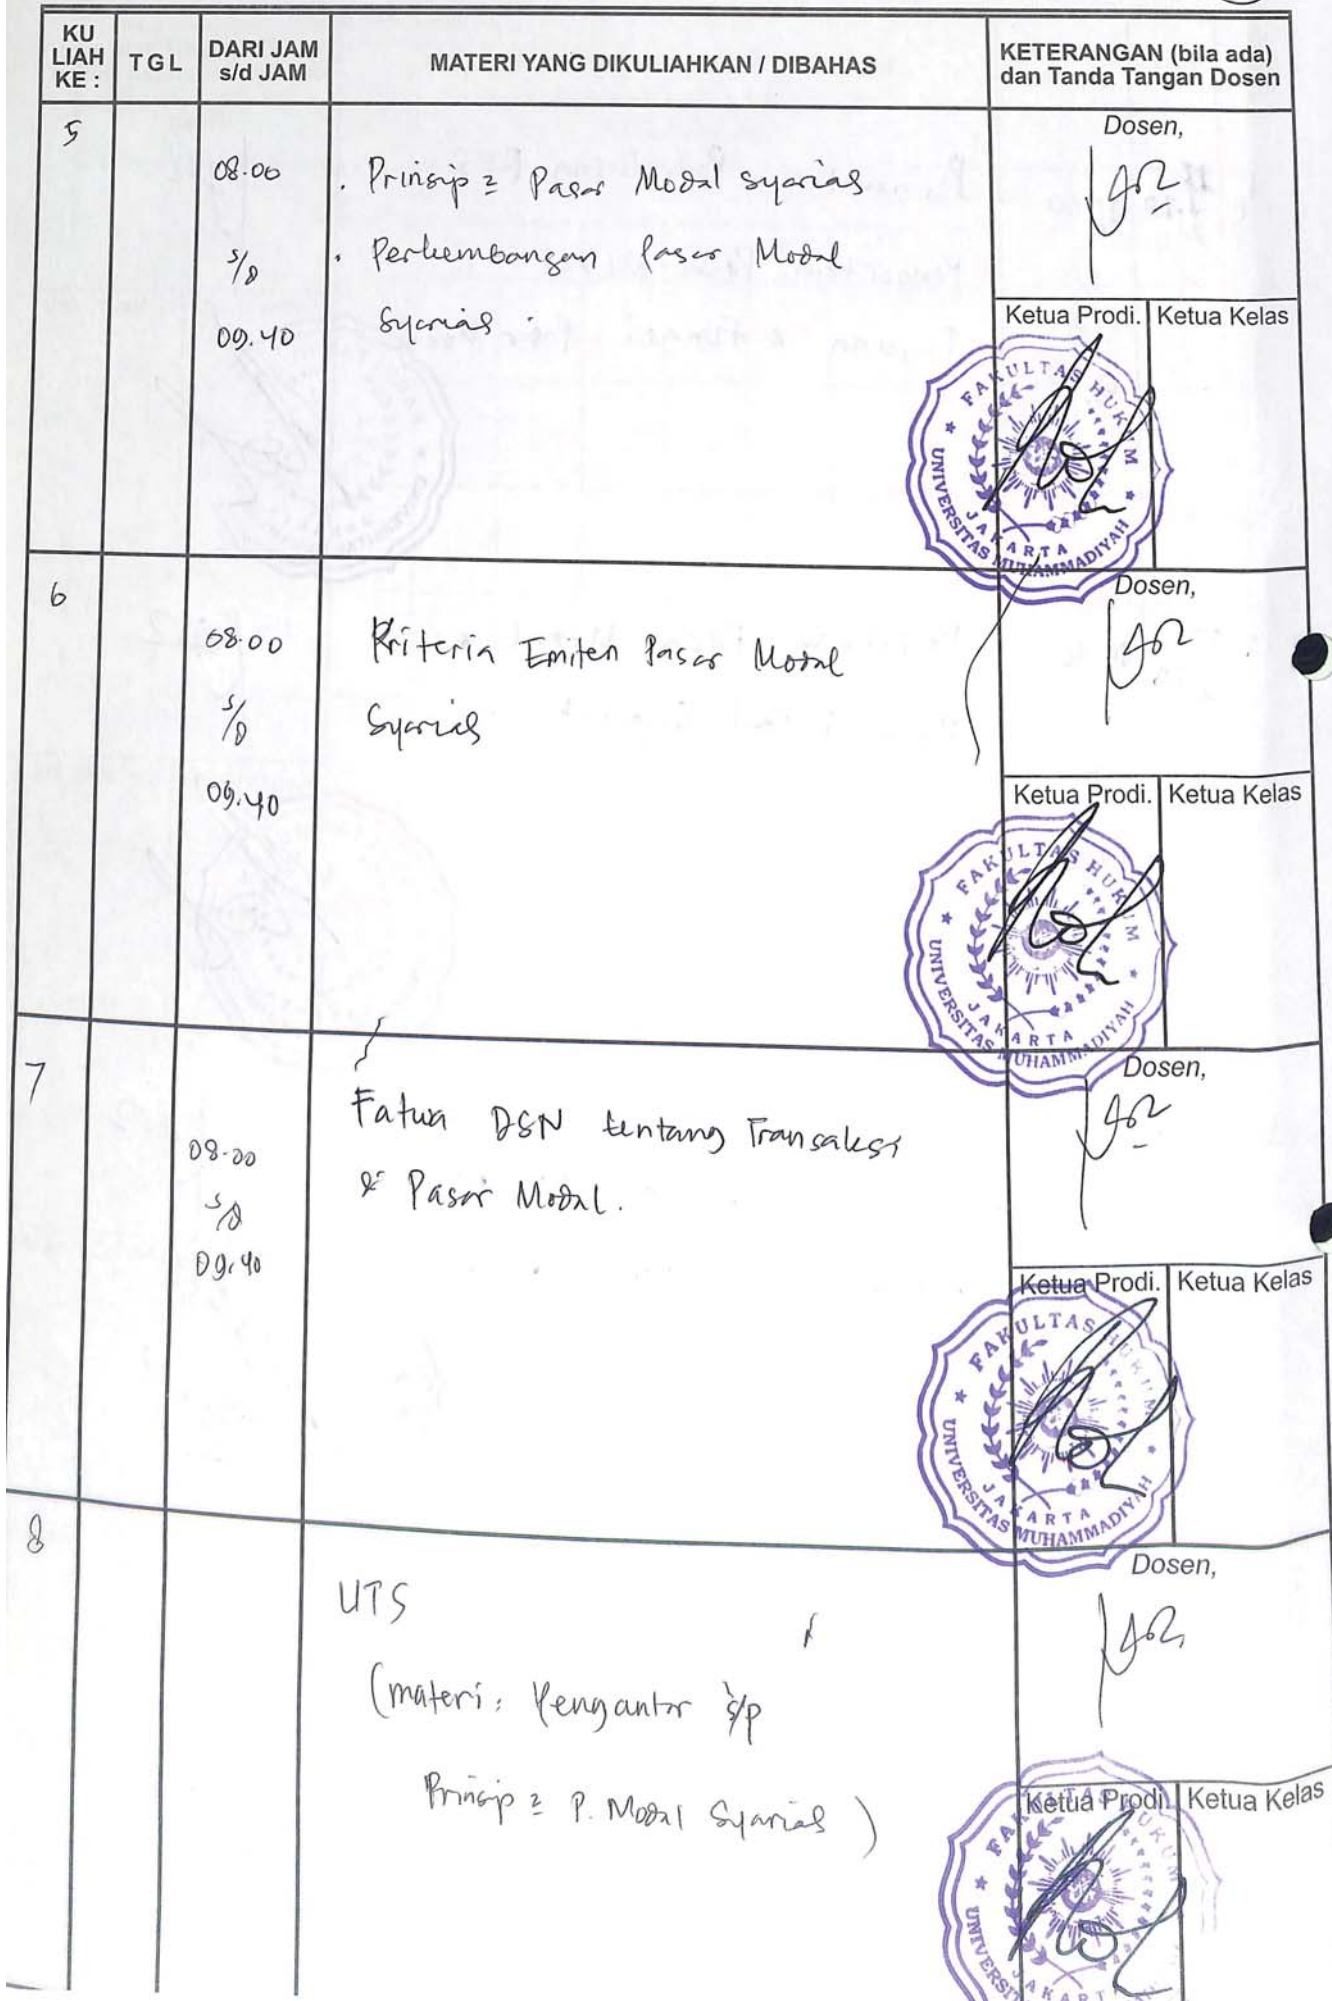 KU LIAH KE : TGL DARI JAM s/d JAM MATERI YANG DIKULIAHKAN / DIBAHAS KETERANGAN (bila ada) dan Tanda Tangan Dosen
5
Dosen,
08.00 . Prinsip2 Pasar Modal Syariah
s/d . Perkembangan Pasar Modal
09.40 Syariah.
Ketua Prodi. Ketua Kelas
FAKULTAS HUKUM
UNIVERSITAS MUHAMMADIYAH
JAKARTA
6
Dosen,
08.00 Kriteria Emiten Pasar Modal
s/d Syariah
09.40
Ketua Prodi. Ketua Kelas
FAKULTAS HUKUM
UNIVERSITAS MUHAMMADIYAH
JAKARTA
7
Dosen,
08.00 Fatwa DSN tentang Transaksi
s/d di Pasar Modal.
09.40
Ketua Prodi. Ketua Kelas
FAKULTAS HUKUM
UNIVERSITAS MUHAMMADIYAH
JAKARTA
8
Dosen,
UTS
(materi: Pengantar s/p
Prinsip2 P. Modal Syariah)
Ketua Prodi. Ketua Kelas